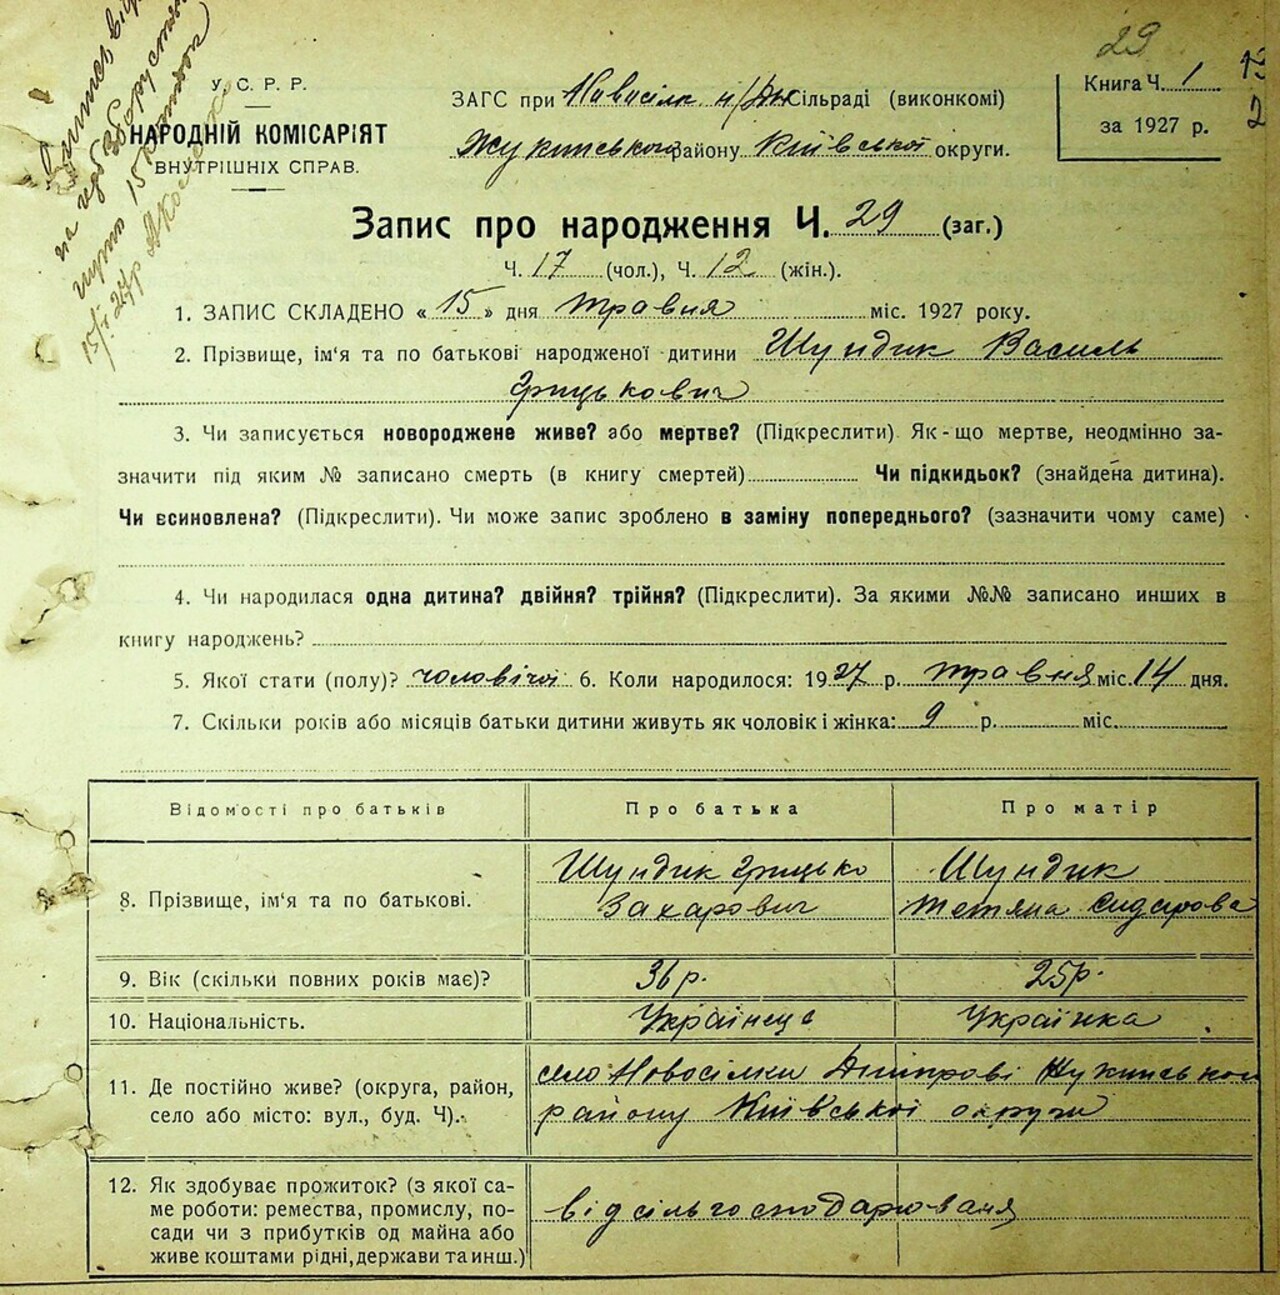 29
У. С. Р. Р.
НАРОДНІЙ КОМІСАРІЯТ
ВНУТРІШНІХ СПРАВ.
ЗАГС при Новосілк. н/Дн. Сільраді (виконкомі)
Жукинського району Київської округи.
Книга Ч. 1
за 1927 р.
Запис про народження Ч. 29 (заг.)
Ч. 17 (чол.), Ч. 12 (жін.).
1. ЗАПИС СКЛАДЕНО « 15 » дня травня міс. 1927 року.
2. Прізвище, ім'я та по батькові народженої дитини Шундик Василь
Грицькович
3. Чи записується новороджене живе? або мертве? (Підкреслити) Як-що мертве, неодмінно за-
значити під яким № записано смерть (в книгу смертей) Чи підкидьок? (знайдена дитина).
Чи всиновлена? (Підкреслити). Чи може запис зроблено в заміну попереднього? (зазначити чому саме)
4. Чи народилася одна дитина? двійня? трійня? (Підкреслити). За якими №№ записано инших в
книгу народжень?
5. Якої стати (полу)? чоловічої 6. Коли народилося: 1927 р. травня міс. 14 дня.
7. Скільки років або місяців батьки дитини живуть як чоловік і жінка: 9 р. міс.
Відомості про батьків Про батька Про матір
8. Прізвище, ім'я та по батькові. Шундик Грицько Захарович Шундик Тетяна Сидарова
9. Вік (скільки повних років має)? 36 р. 25 р.
10. Національність. Українець Українка
11. Де постійно живе? (округа, район, село Новосілки Дніпрові Жукинського
село або місто: вул., буд. Ч). району Київської округи
12. Як здобуває прожиток? (з якої са-
ме роботи: ремества, промислу, по- від сільгосподарюваня
сади чи з прибутків од майна або
живе коштами рідні, держави та инш.)